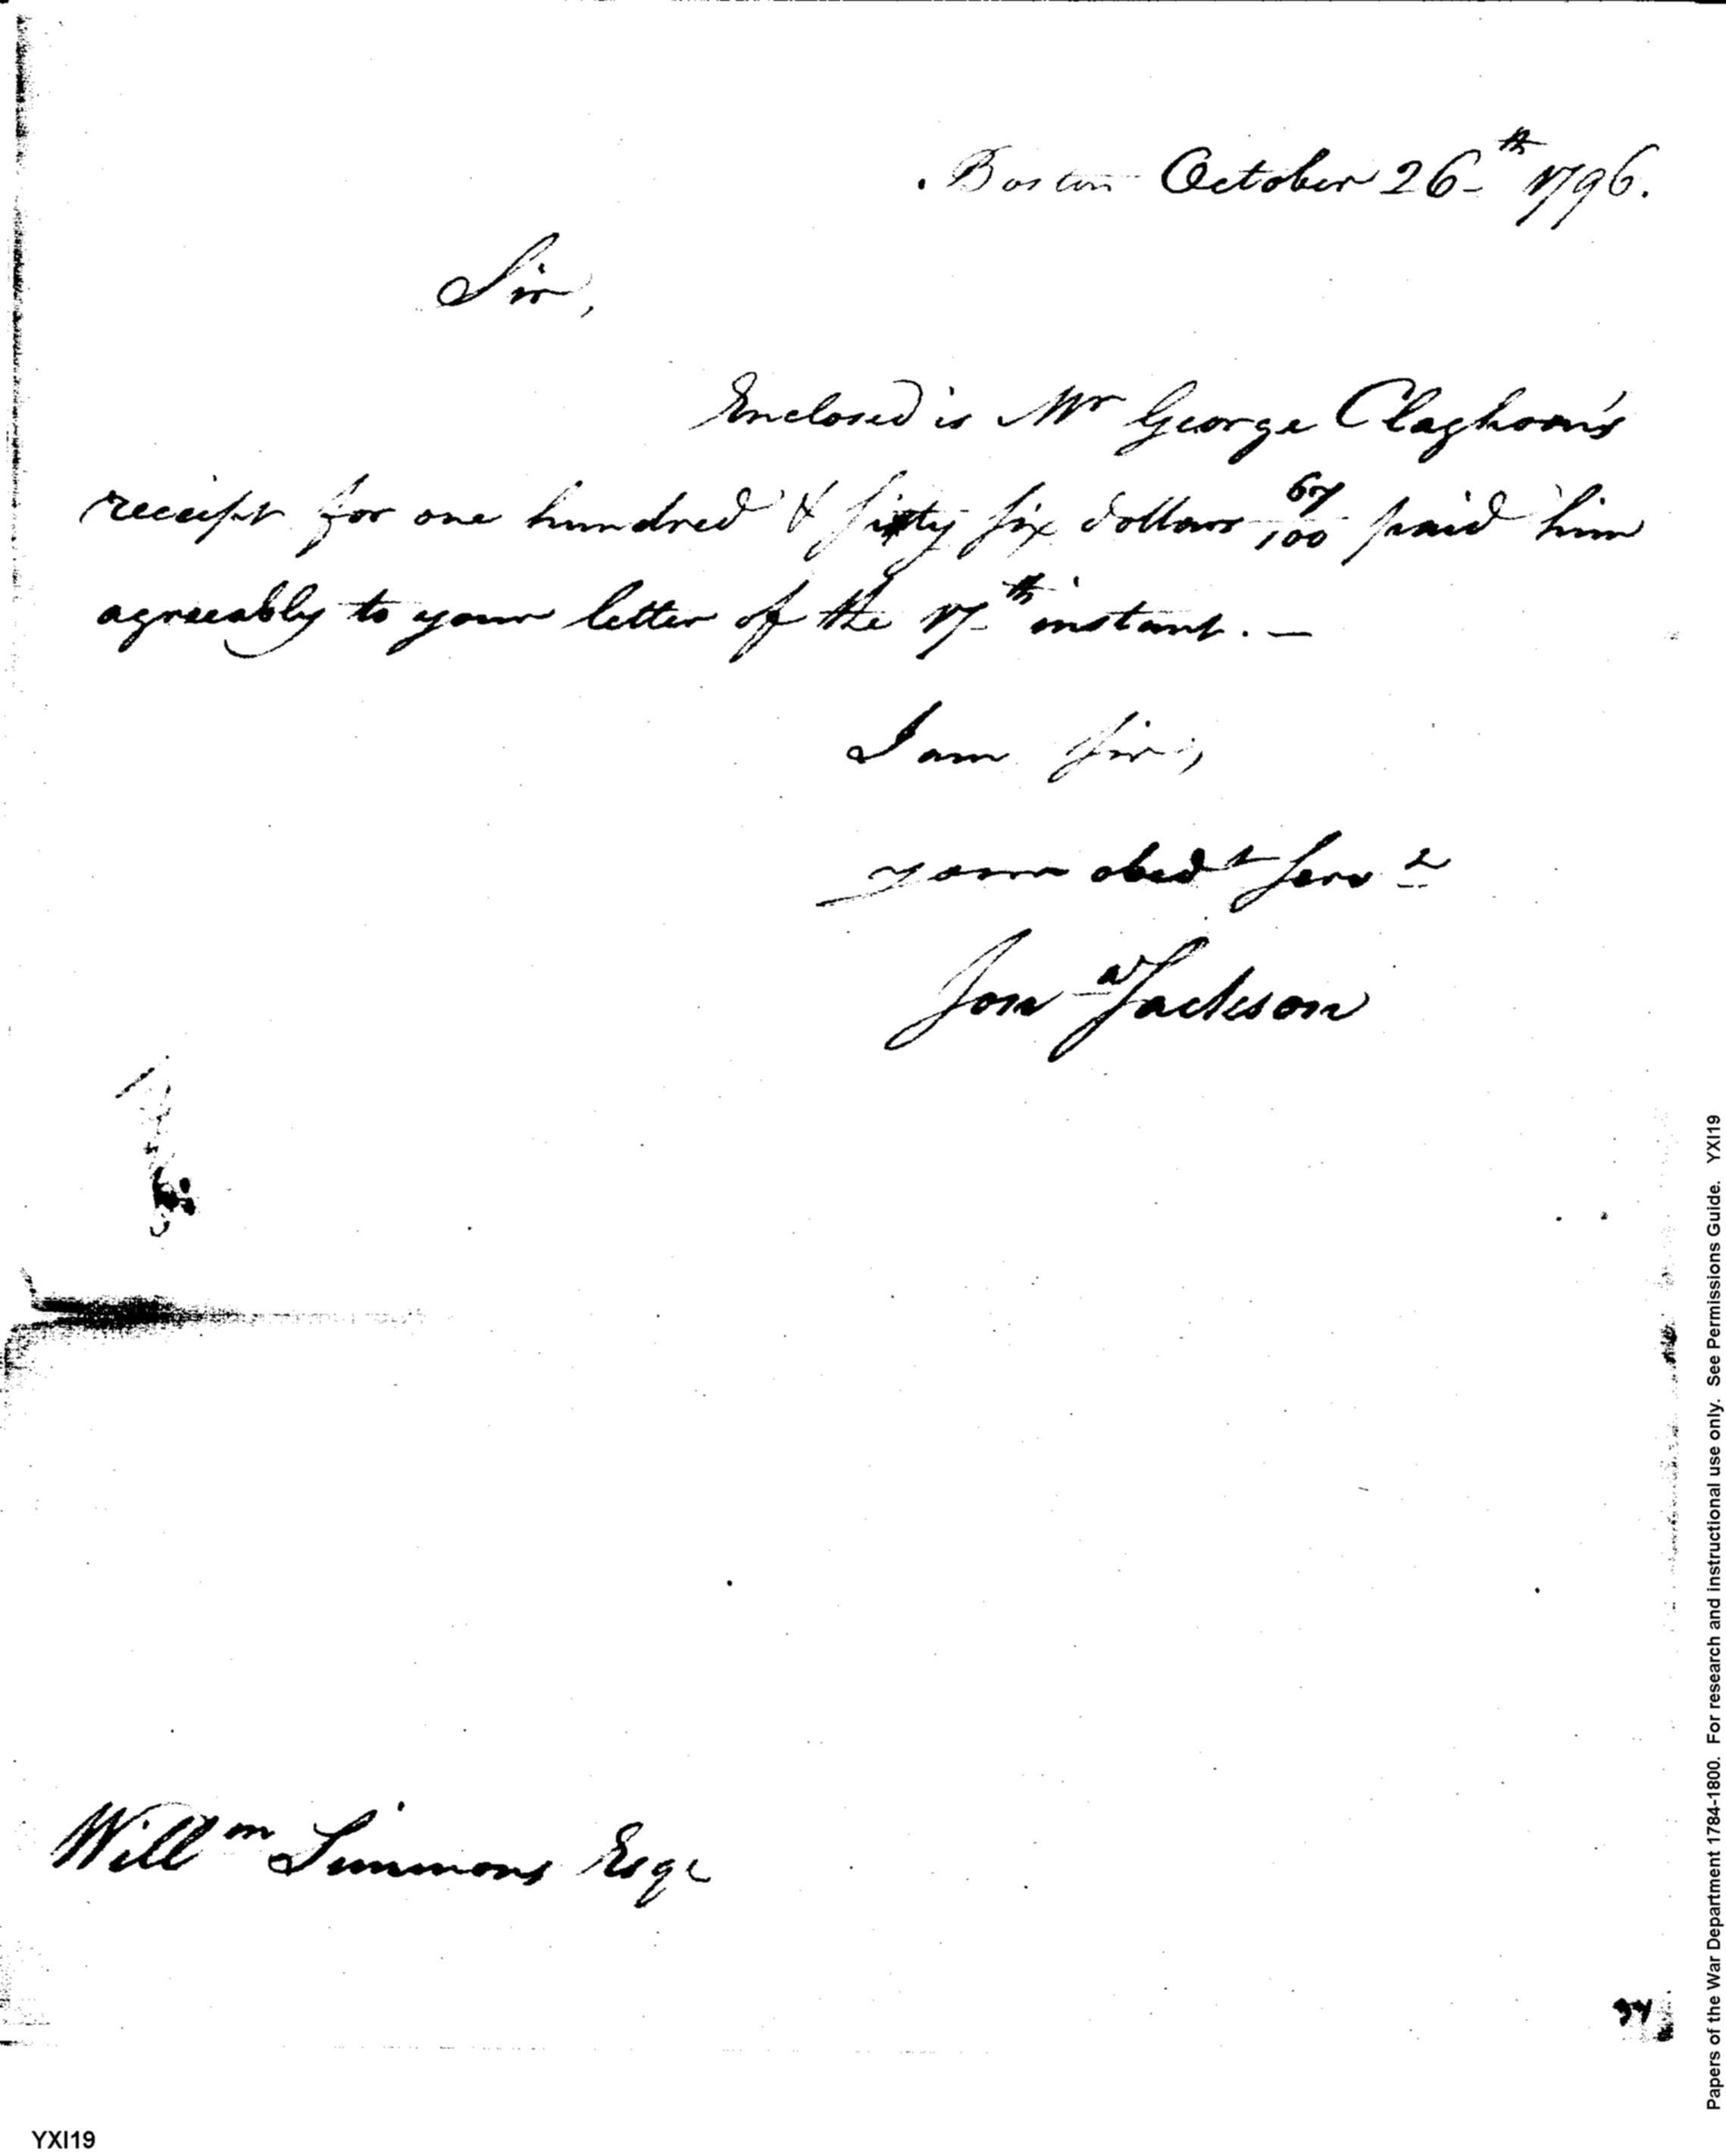 Boston October 26th 1796.
Sir,
Enclosed is Mr George Claghorn's
receipt for one hundred & sixty six dollars 67/100 paid him
agreeably to your letter of the 17th instant. —
I am Sir,
your obedt Servt
Jona Jackson
Willm Simmons Esqr
94
YXI19
Papers of the War Department 1784-1800. For research and instructional use only. See Permissions Guide. YXI19